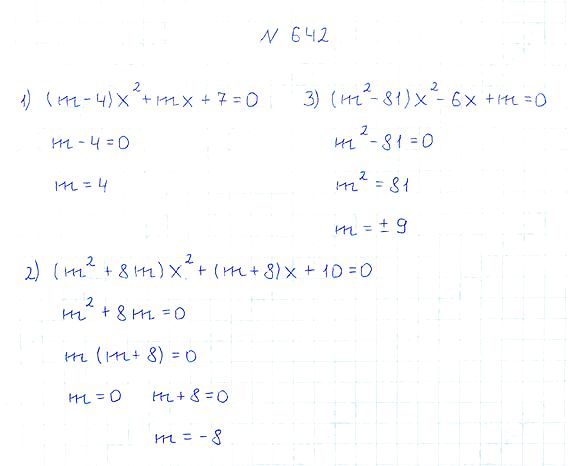 N 642
1) (m-4)x²+mx+7=0
m-4=0
m=4
3) (m²-81)x²-6x+m=0
m²-81=0
m²=81
m=±9
2) (m²+8m)x²+(m+8)x+10=0
m²+8m=0
m(m+8)=0
m=0 m+8=0
m=-8